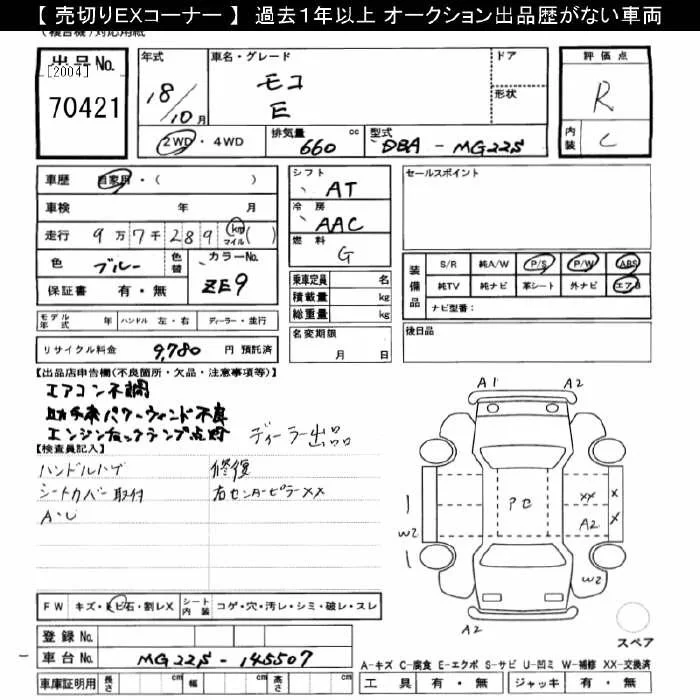 【 売切りEXコーナー 】 過去1年以上 オークション出品歴がない車両
出品No.
[2004]
70421
年式
18/10月
車名・グレード
モコ
E
ドア
形状
2WD・4WD
排気量 660 cc
型式 DBA - MG22S
評価点
R
内装 C
車歴 自家用・( )
車検 年 月
走行 9万7千289 km マイル ( )
色 ブルー 色替
カラーNo. ZE9
保証書 有・無
シフト AT
冷房 AAC
燃料 G
乗車定員 名
積載量 kg
総重量 kg
名変期限 月 日
セールスポイント
装備品
S/R 純A/W P/S P/W ABS
純TV 純ナビ 革シート 外ナビ エアB
ナビ型番:
後日品
モデル年式 年 ハンドル 左・右 ディーラー・並行
リサイクル料金 9,780 円 預託済
【出品店申告欄(不良箇所・欠品・注意事項等)】
エアコン不調
助手席パワーウィンド不良
エンジンチェックランプ点灯
ディーラー出品
【検査員記入】
ハンドルハゲ
シートカバー取付
修復
右センターピラーXX
A1
A2
PE
XX
X
A2
X
W2
W2
A2
A2
スペア
FW キズ・ヒビ石・割レX
シート内装 コゲ・穴・汚レ・シミ・破レ・スレ
登録No.
車台No. MG22S-145507
車庫証明用 長さ cm 幅 cm 高さ cm
A-キズ C-腐食 E-エクボ S-サビ U-凹ミ W-補修 XX-交換済
工具 有・無 ジャッキ 有・無